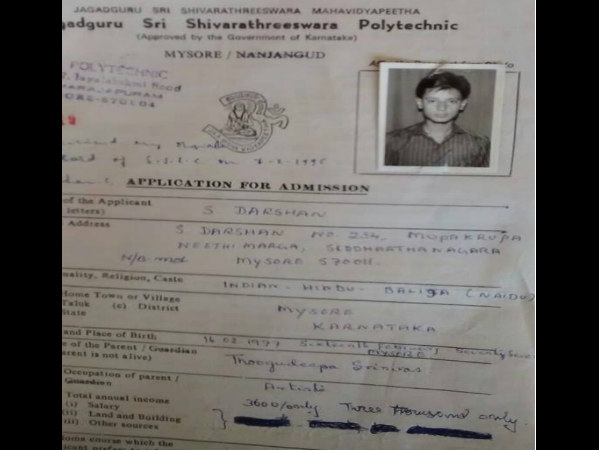 JAGADGURU SRI SHIVARATHREESWARA MAHAVIDYAPEETHA
agadguru Sri Shivarathreeswara Polytechnic
(Approved by the Government of Karnataka)
MYSORE / NANJANGUD
POLYTECHNIC
ORE-570004
S.S.L.C on
APPLICATION FOR ADMISSION
of the Applicant
letters)
S DARSHAN
Address
S DARSHAN NO 254, MUPAKRUPA
NEETHI MARGA, SIDDHARTHANAGARA
MYSORE 570011.
nality, Religion, Caste
INDIAN - HINDU - BALIJA (NAIDU)
Home Town or Village
Taluk (c) District
State
MYSORE
KARNATAKA
and Place of Birth
16 02 1977 Sixteenth February Seventy Seven
MYSORE
e of the Parent / Guardian
arent is not alive)
Thoogudeepa Srinivas
Occupation of parent /
Guardian
Artist
Total annual income
(i) Salary
3600/only Three Thousand only.
(ii) Land and Building
(iii) Other sources
course which the